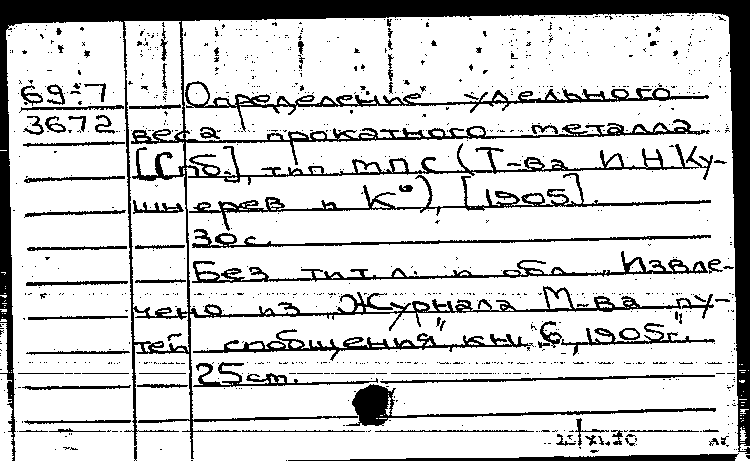 69:7 Определение удельного
3672 веса прокатного металла.
[Спб.], тип. МПС (Т-ва И.Н Ку-
шнерев и К°), [1905].
30с.
Без тит. л. и обл. „Извле-
чено из „Журнала М-ва пу-
тей сообщения", кн. 6, 1905г."
25см.